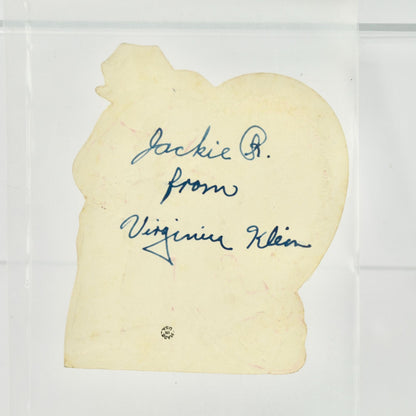 Jackie R.
from
Virginia Klein